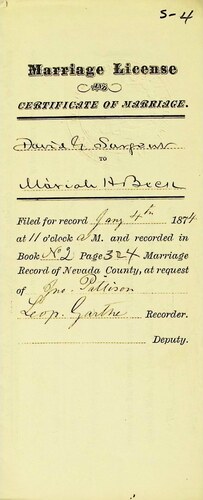 S-4
Marriage License
AND
CERTIFICATE OF MARRIAGE.
David G Sargent
TO
Mariah H Beck
Filed for record Jany 4th 1874
at 11 o'clock a M. and recorded in
Book No 2 Page 324 Marriage
Record of Nevada County, at request
of Jno. Pattison
Leop. Garthe Recorder.
Deputy.